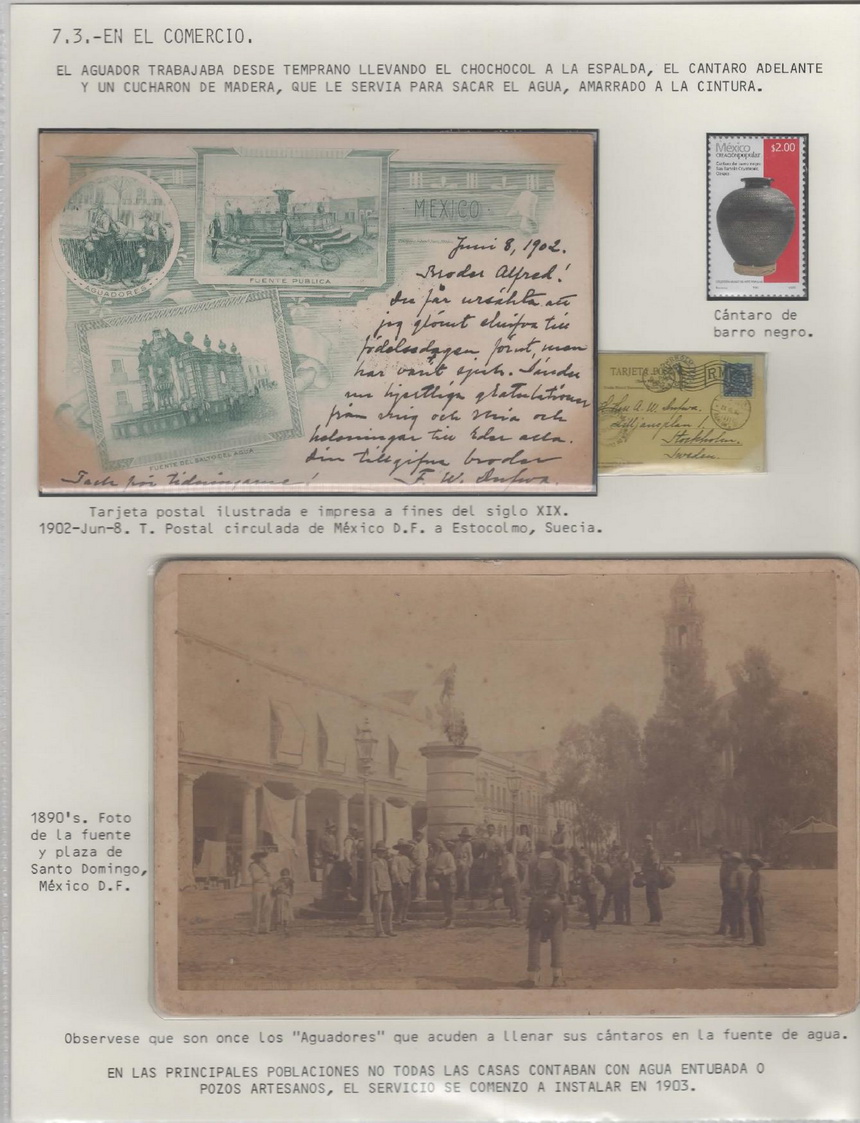 7.3.-EN EL COMERCIO.
EL AGUADOR TRABAJABA DESDE TEMPRANO LLEVANDO EL CHOCHOCOL A LA ESPALDA, EL CANTARO ADELANTE
Y UN CUCHARON DE MADERA, QUE LE SERVIA PARA SACAR EL AGUA, AMARRADO A LA CINTURA.
MEXICO
AGUADORES
FUENTE PUBLICA
FUENTE DEL SALTO EL AGUA
Juni 8, 1902.
Broder Alfred!
Du får ursäkta att
jag glömt skrifva till
födelsedagen förut, men
har varit sjuk. Sänder
nu hjertliga gratulationer
från mig och Maria och
helsningar till Eder alla.
Din tillgifne broder
F. W.
Tack för tidningarne!
México
creación popular
$2.00
Cántaro de barro negro
Cántaro de
barro negro.
TARJETA
A. W.
Lilljansplan 1,
Stockholm.
Sweden.
Tarjeta postal ilustrada e impresa a fines del siglo XIX.
1902-Jun-8. T. Postal circulada de México D.F. a Estocolmo, Suecia.
1890's. Foto
de la fuente
y plaza de
Santo Domingo,
México D.F.
Observese que son once los "Aguadores" que acuden a llenar sus cántaros en la fuente de agua.
EN LAS PRINCIPALES POBLACIONES NO TODAS LAS CASAS CONTABAN CON AGUA ENTUBADA O
POZOS ARTESANOS, EL SERVICIO SE COMENZO A INSTALAR EN 1903.